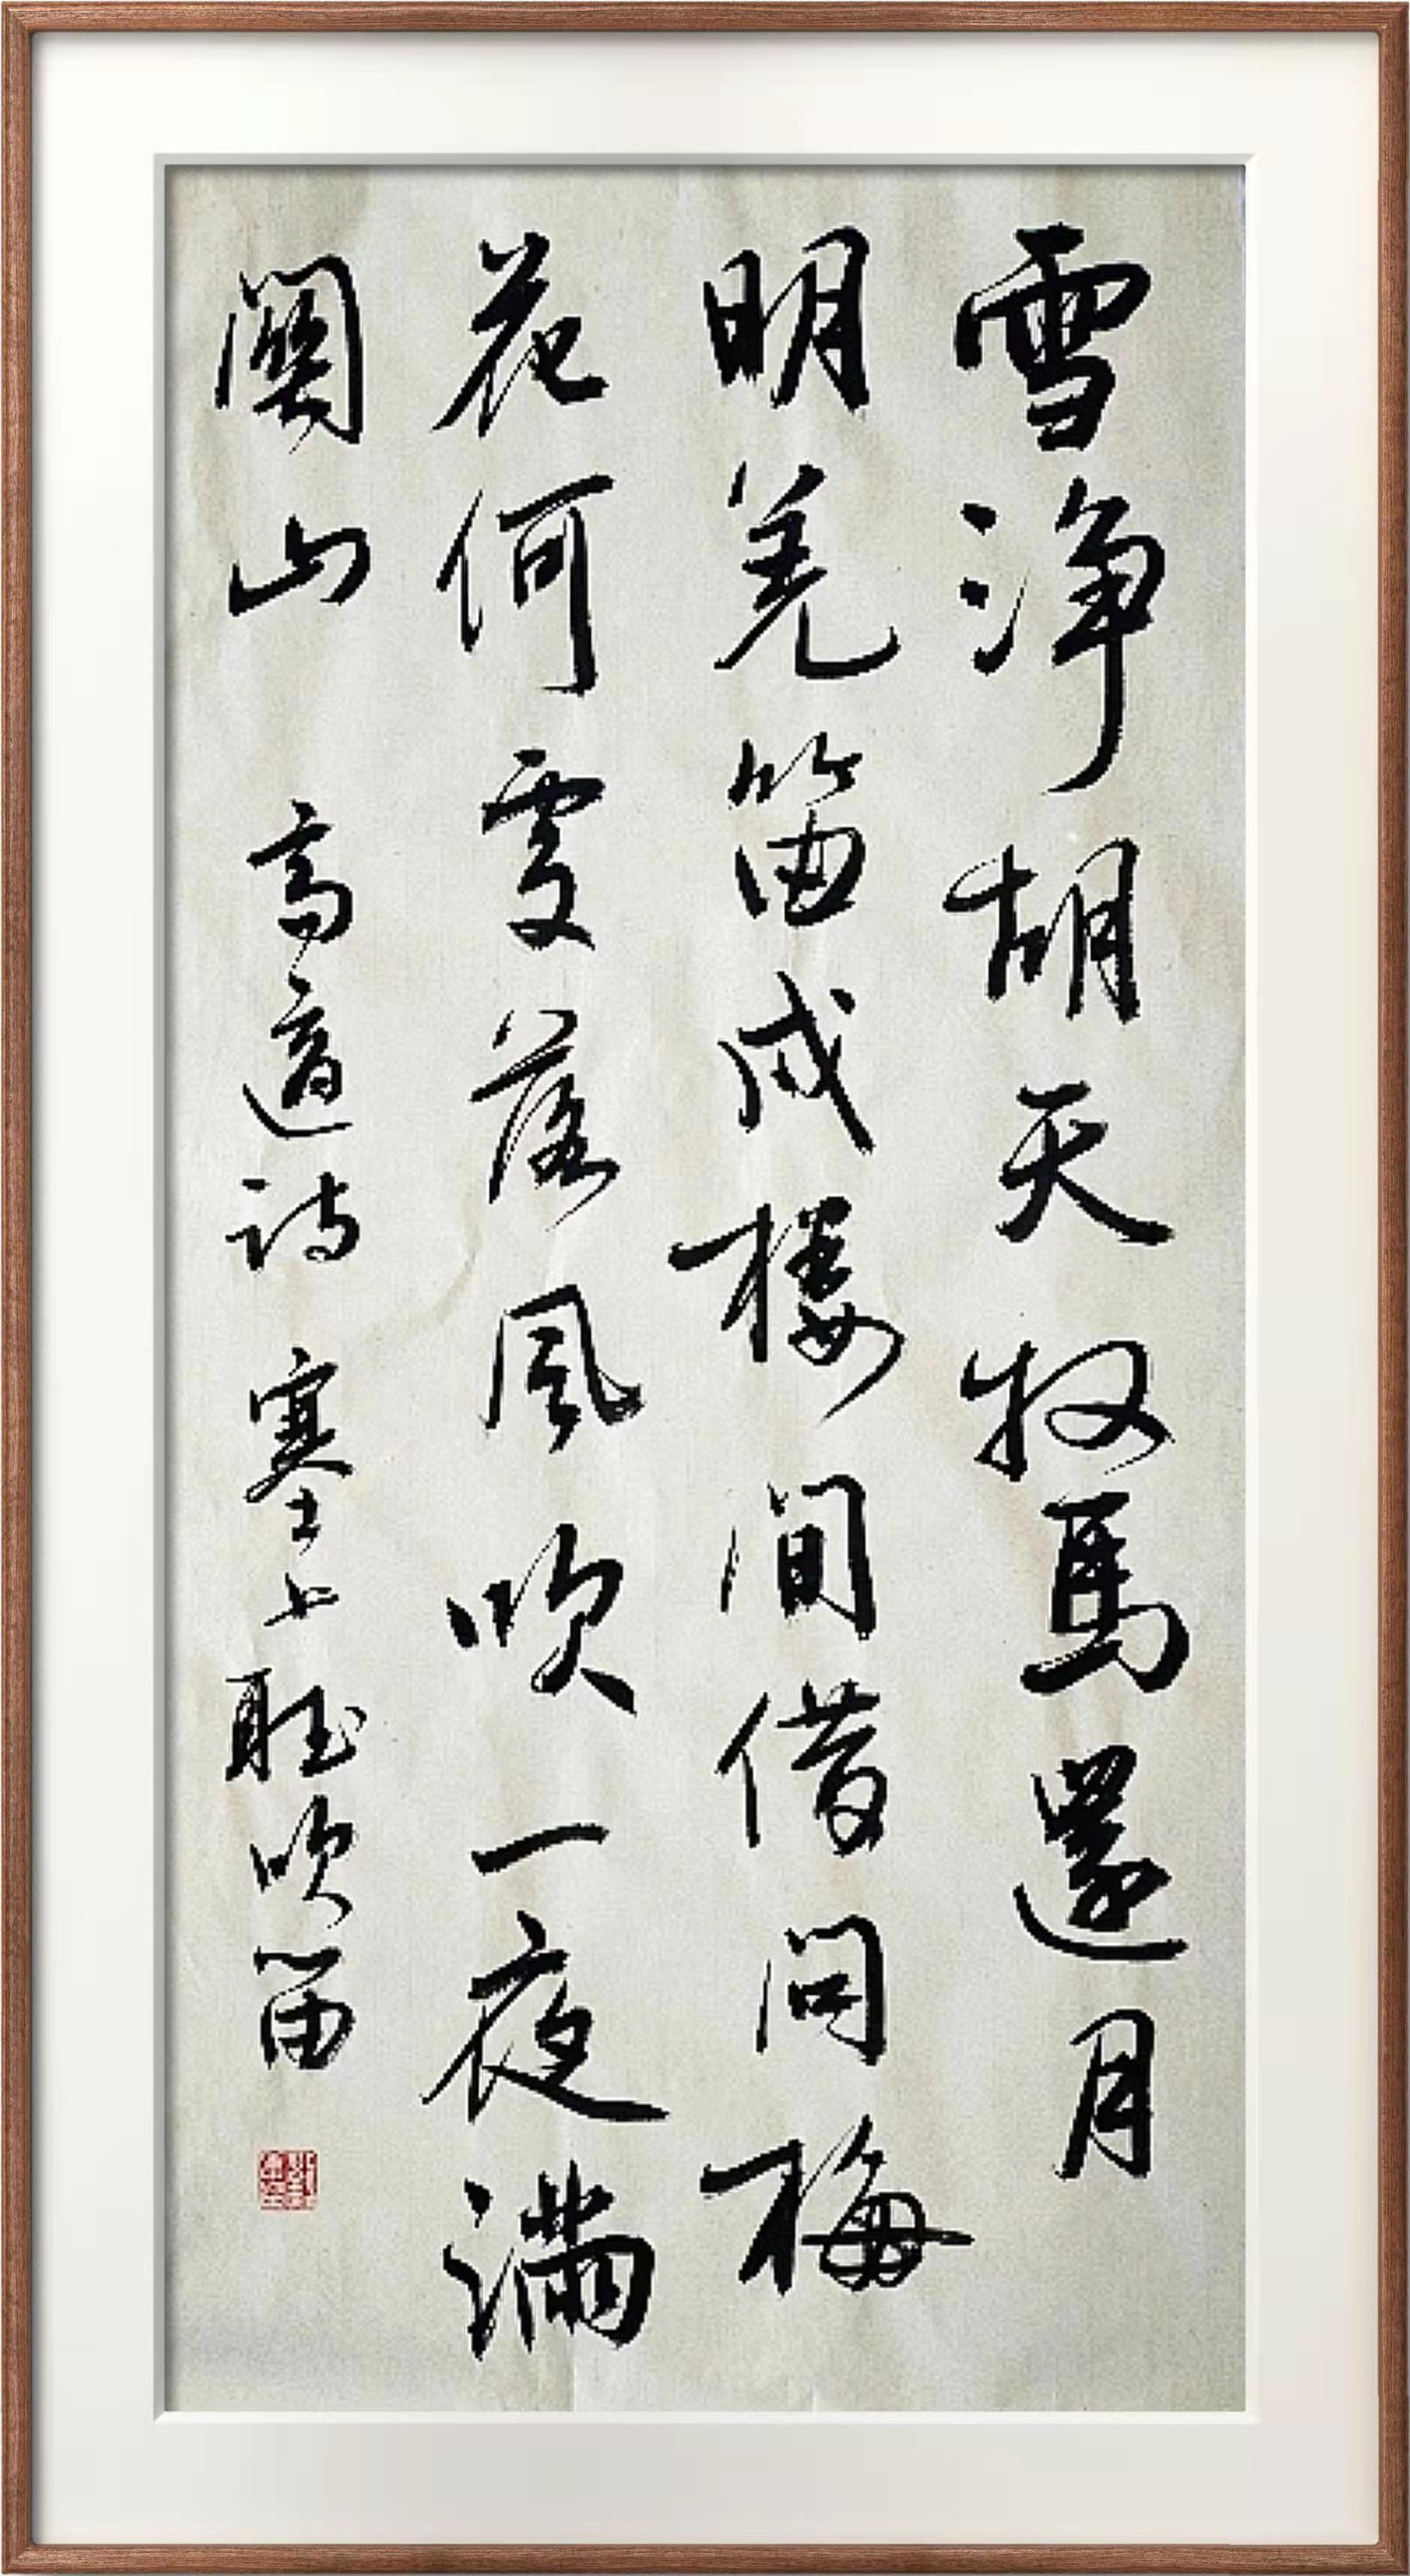 雪净胡天牧馬還月
明羌笛戍楼间借问梅
花何處落風吹一夜滿
關山 高適诗 塞上聽吹笛